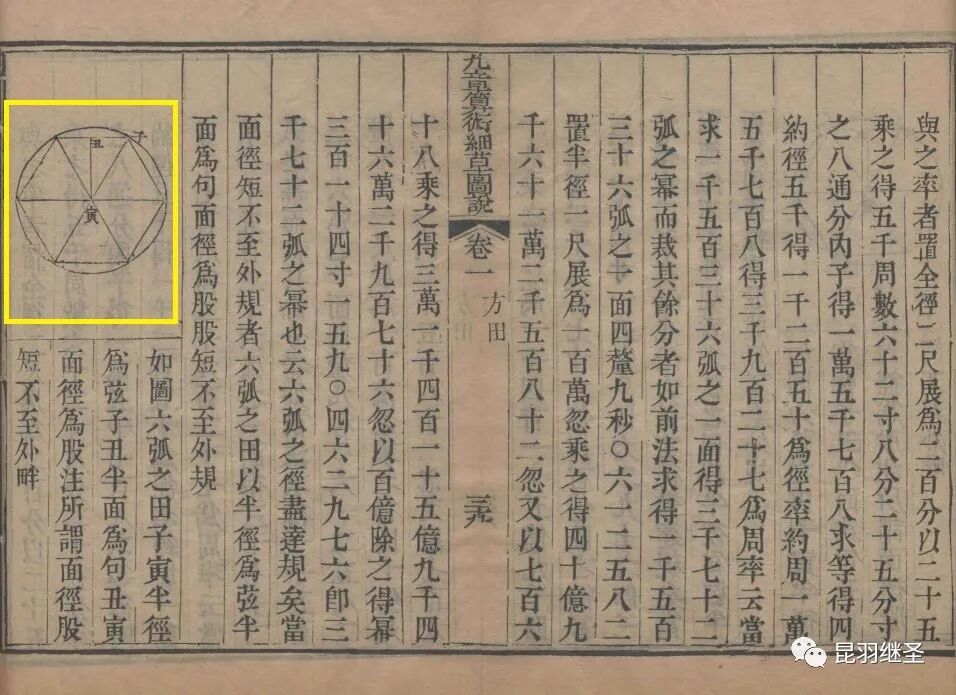 與之率者置全徑二尺展爲二百分以二十五
乘之得五千周數六十二寸八分二十五分寸
之八通分內子得一萬五千七百八求等得四
約徑五千得一千二百五十爲徑率約周一萬
五千七百八得三千九百二十七爲周率云當
求一千五百三十六弧之一面得三千七十二
弧之冪而裁其餘分者如前法求得一千五百
三十六弧之一面四釐九秒〇六一二五八二
置半徑一尺展爲一百萬忽乘之得四十億九
千六十一萬二千五百八十二忽又以七百六
九章算術細草圖說
卷一
方田
三九
十八乘之得三萬一千四百一十五億九千四
十六萬二千九百七十六忽以百億除之得冪
三百一十四寸一五九〇四六二九七六卽三
千七十二弧之冪也云六弧之徑盡達規矣當
面徑短不至外規者六弧之田以半徑爲弦半
面爲句面徑爲股股短不至外規
子
丑
寅
如圖六弧之田子寅半徑
爲弦子丑半面爲句丑寅
面徑爲股注所謂面徑股
短不至外畔
昆羽继圣